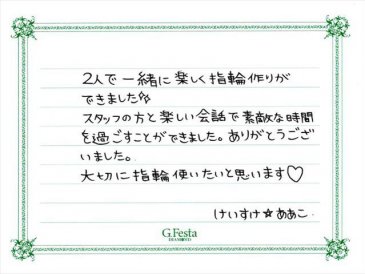 2人で一緒に楽しく指輪作りが
できました✨
スタッフの方と楽しい会話で素敵な時間
を過ごすことができました。ありがとうござ
いました。
大切に指輪使いたいと思います♡
けいすけ☆あこ
G.Festa
DIAMOND